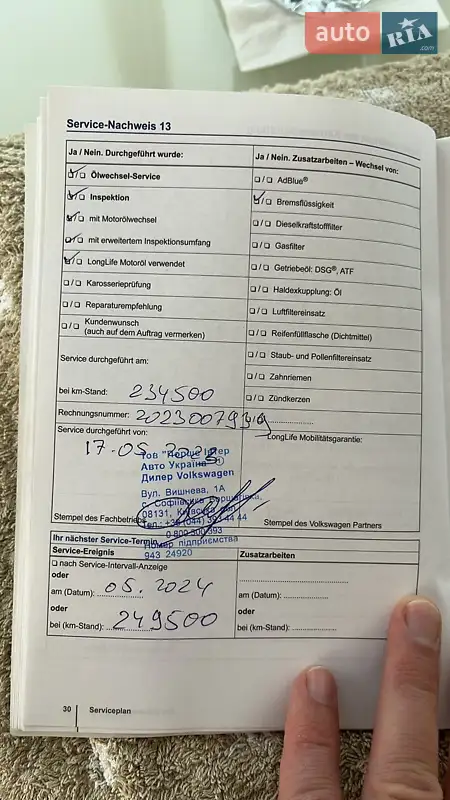 auto RIA .com
Service-Nachweis 13
Ja / Nein. Durchgeführt wurde:
Ölwechsel-Service
Inspektion
mit Motorölwechsel
mit erweitertem Inspektionsumfang
LongLife Motoröl verwendet
Karosserieprüfung
Reparaturempfehlung
Kundenwunsch
(auch auf dem Auftrag vermerken)
Service durchgeführt am:
bei km-Stand: 234500
Rechnungsnummer:
Service durchgeführt von:
17.05.2023
Тов "Порше Інтер
Авто Україна"
Дилер Volkswagen
Вул. Вишнева, 1А
08131, Київська
0 800
Номер підприємства
943 24920
Stempel des Fachbetriebs
Ja / Nein. Zusatzarbeiten – Wechsel von:
AdBlue®
Bremsflüssigkeit
Dieselkraftstofffilter
Gasfilter
Getriebeöl: DSG®, ATF
Haldexkupplung: Öl
Luftfiltereinsatz
Reifenfüllflasche (Dichtmittel)
Staub- und Pollenfiltereinsatz
Zahnriemen
Zündkerzen
LongLife Mobilitätsgarantie:
Stempel des Volkswagen Partners
Ihr nächster Service-Termin
Service-Ereignis
nach Service-Intervall-Anzeige
oder
am (Datum): 05.2024
oder
bei (km-Stand): 249500
Zusatzarbeiten:
am (Datum):
oder
bei (km-Stand):
30 Serviceplan